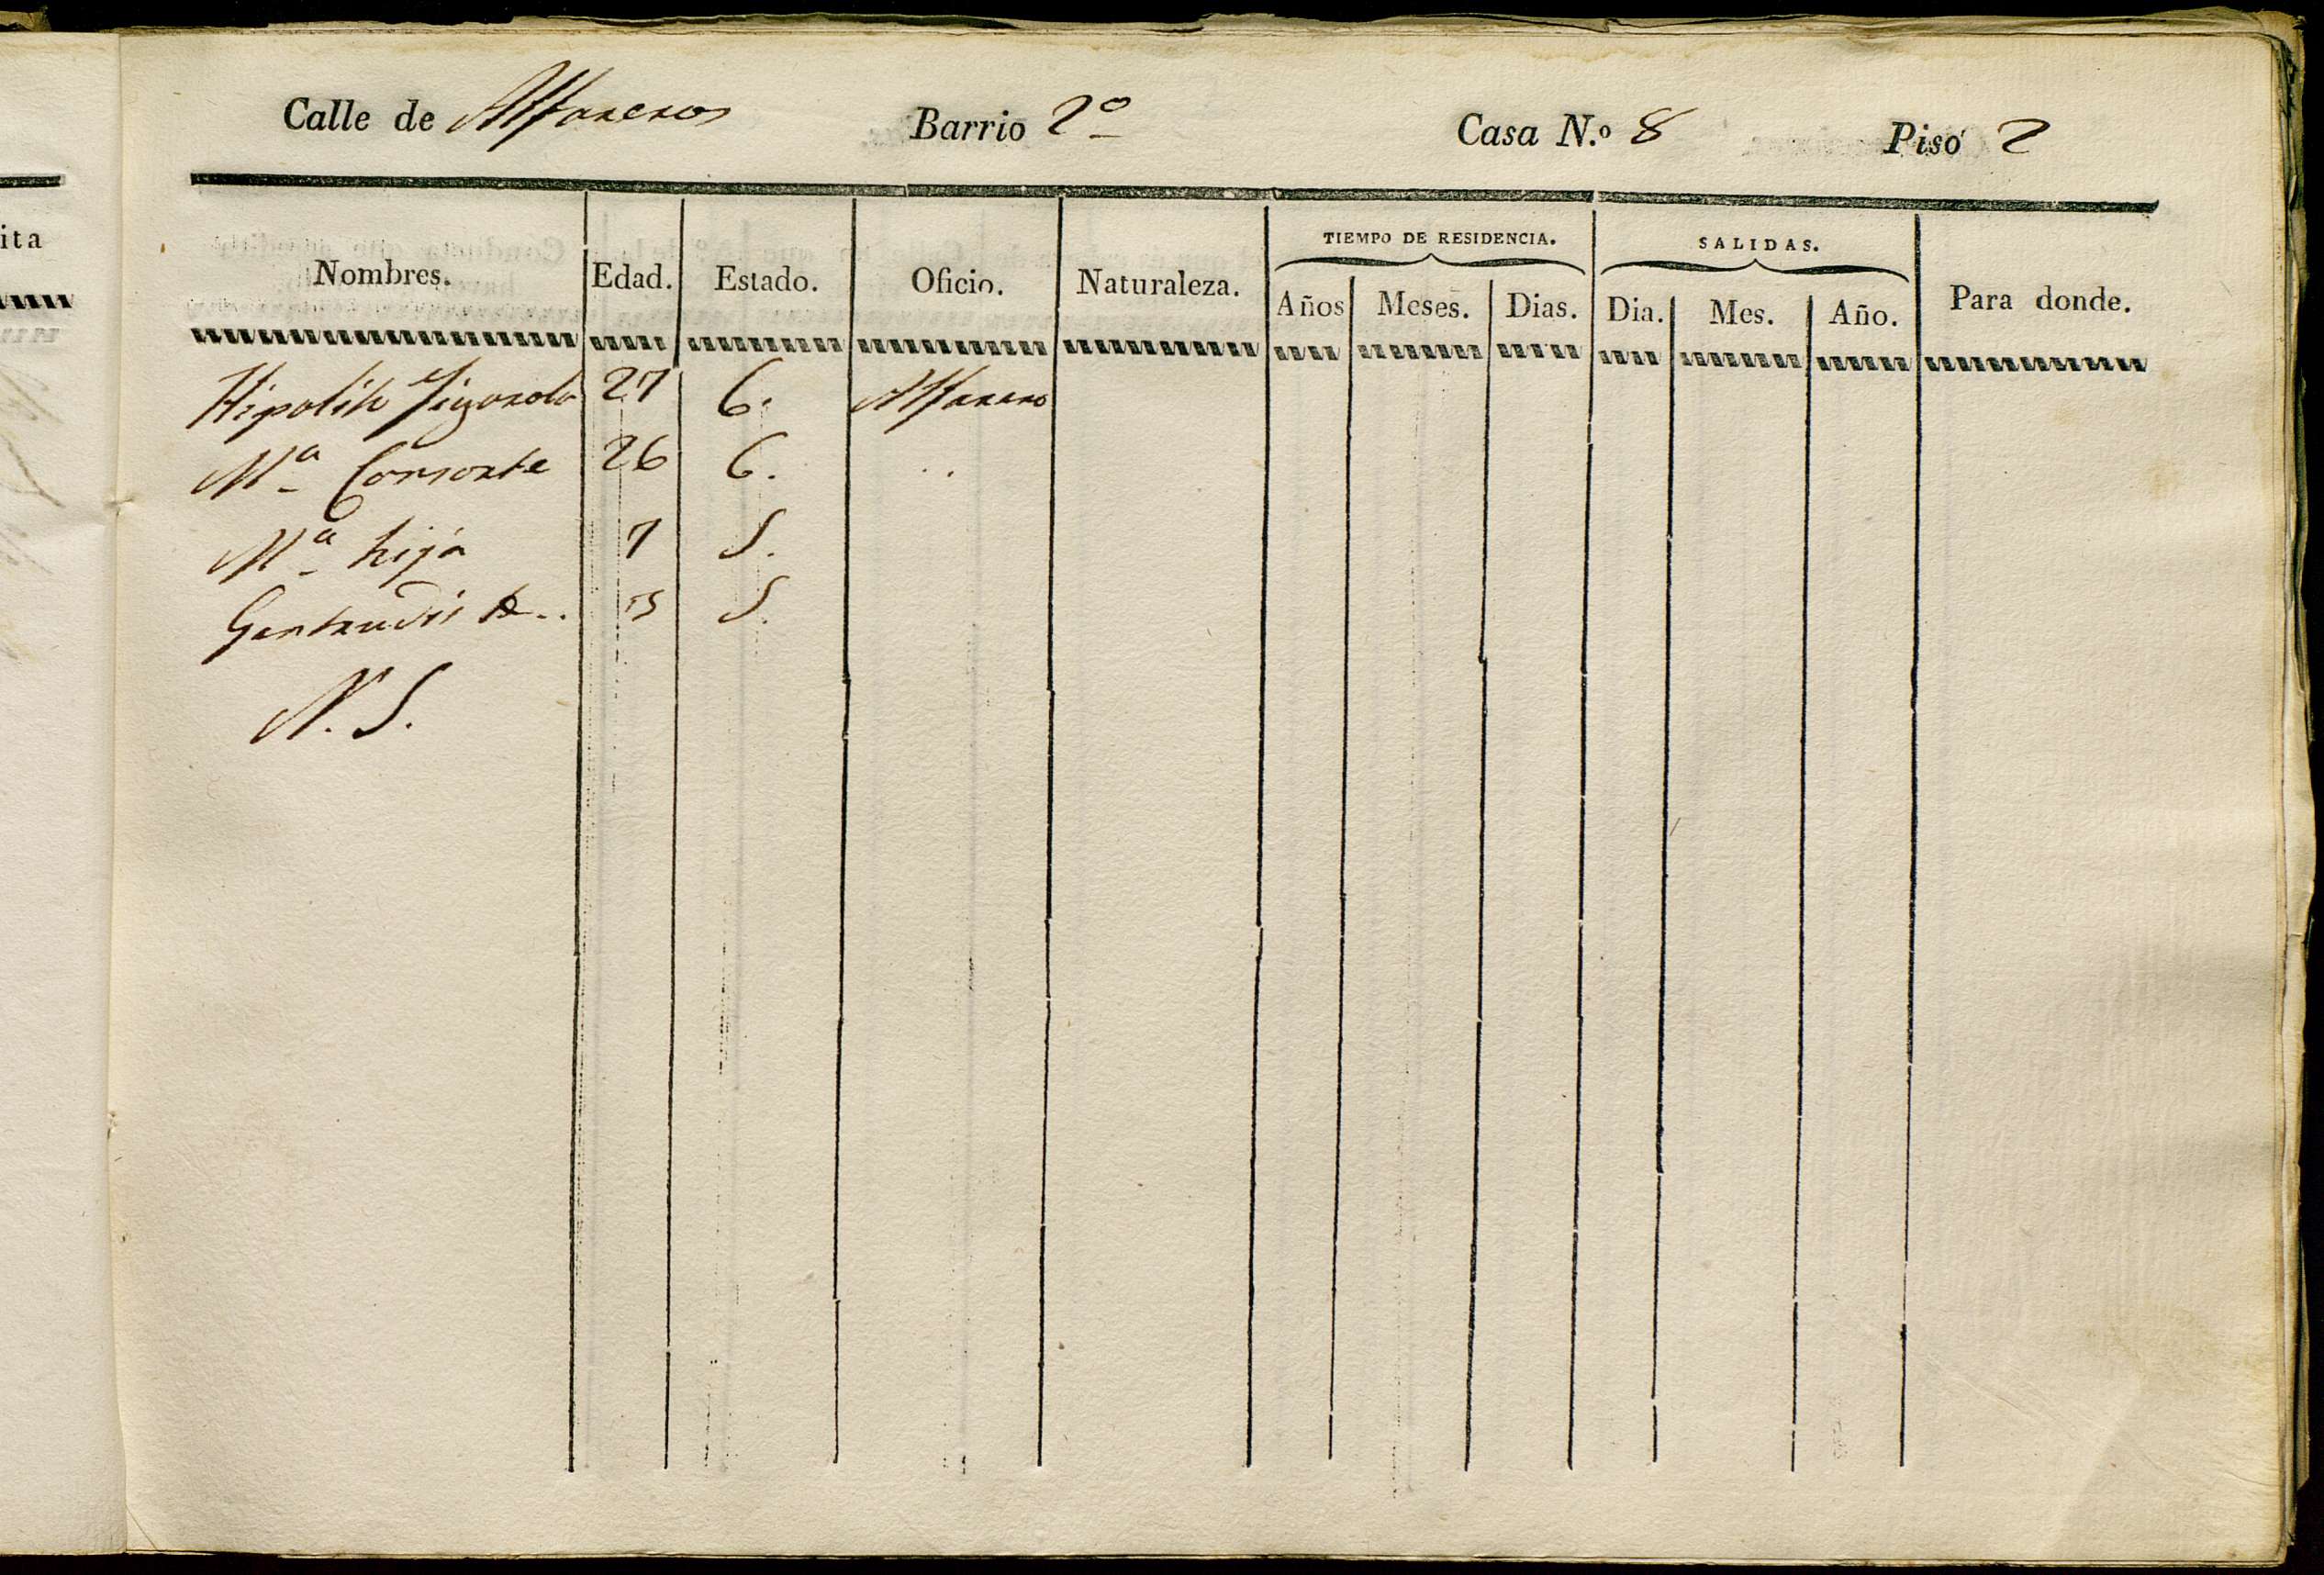 ita
Calle de Alfareros Barrio 2º Casa N.º 8 Piso 2
TIEMPO DE RESIDENCIA. SALIDAS.
Nombres. Edad. Estado. Oficio. Naturaleza. Años Meses. Dias. Dia. Mes. Año. Para donde.
Hipolito 27 C. Alfarero
Mª Consorte 26 C. . .
Mª hija 7 S.
Gertrudis S.
N. S.